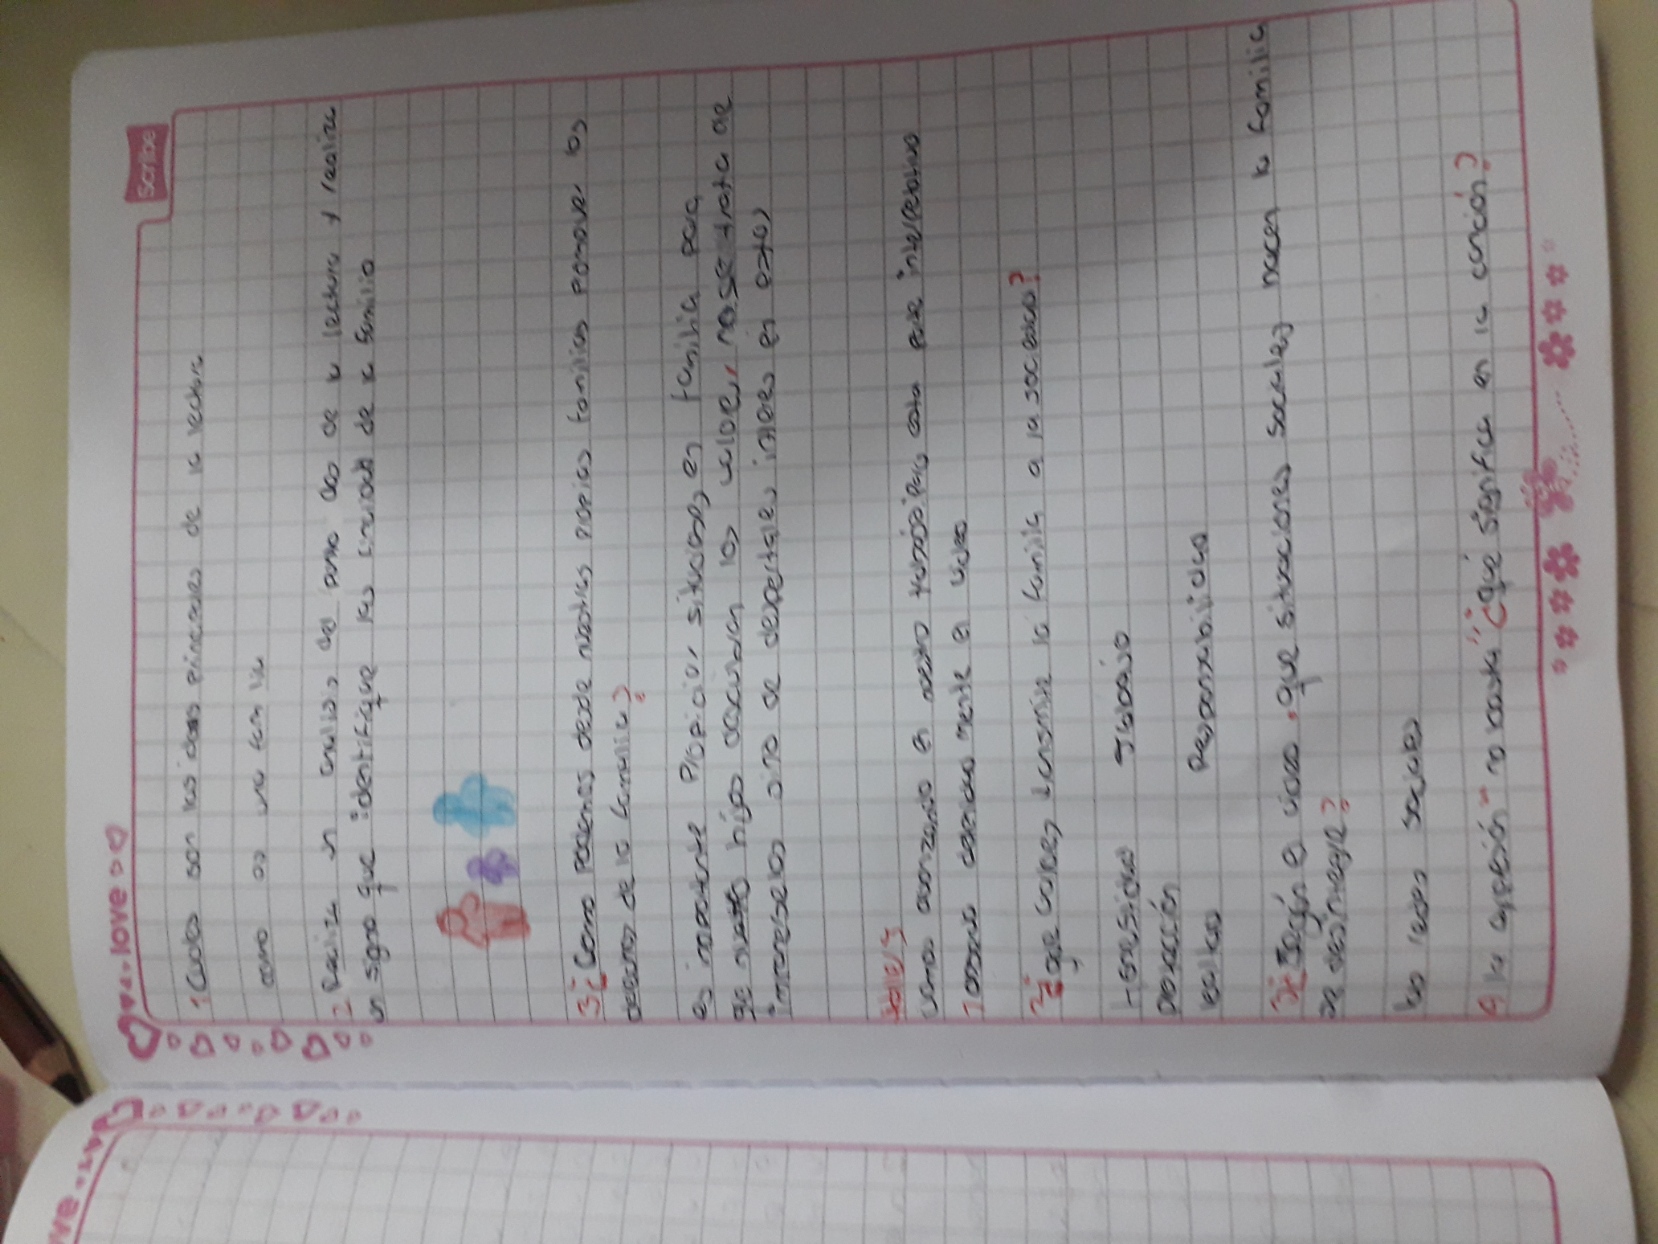 love
Scribe
1 Cuales son las ideas principales de la lectura
como es una familia
2 Realiza un analisis del parrafo dos de la lectura y realiza
un signo que identifique la unidad de la familia
3¿ Como podemos desde nuestras propias familias promover los
derechos de la familia?
es importante Propiciar situaciones en familia para
que nuestros hijos descubran los valores, no se trata de
imponerselos sino de despertarles interes en estos
vamos avanzando en nuestro para esta fase interpretativa
1 observa detenida mente el video
2¿ que valores transmite la familia a la sociedad?
Honestidad Trabajo
proteccion
lealtad Responsabilidad
3¿ Según el video. que situaciones sociales hacen la familia
se desintegre?
las redes sociales
4 la expresión "no basta" ¿qué significa en la canción?